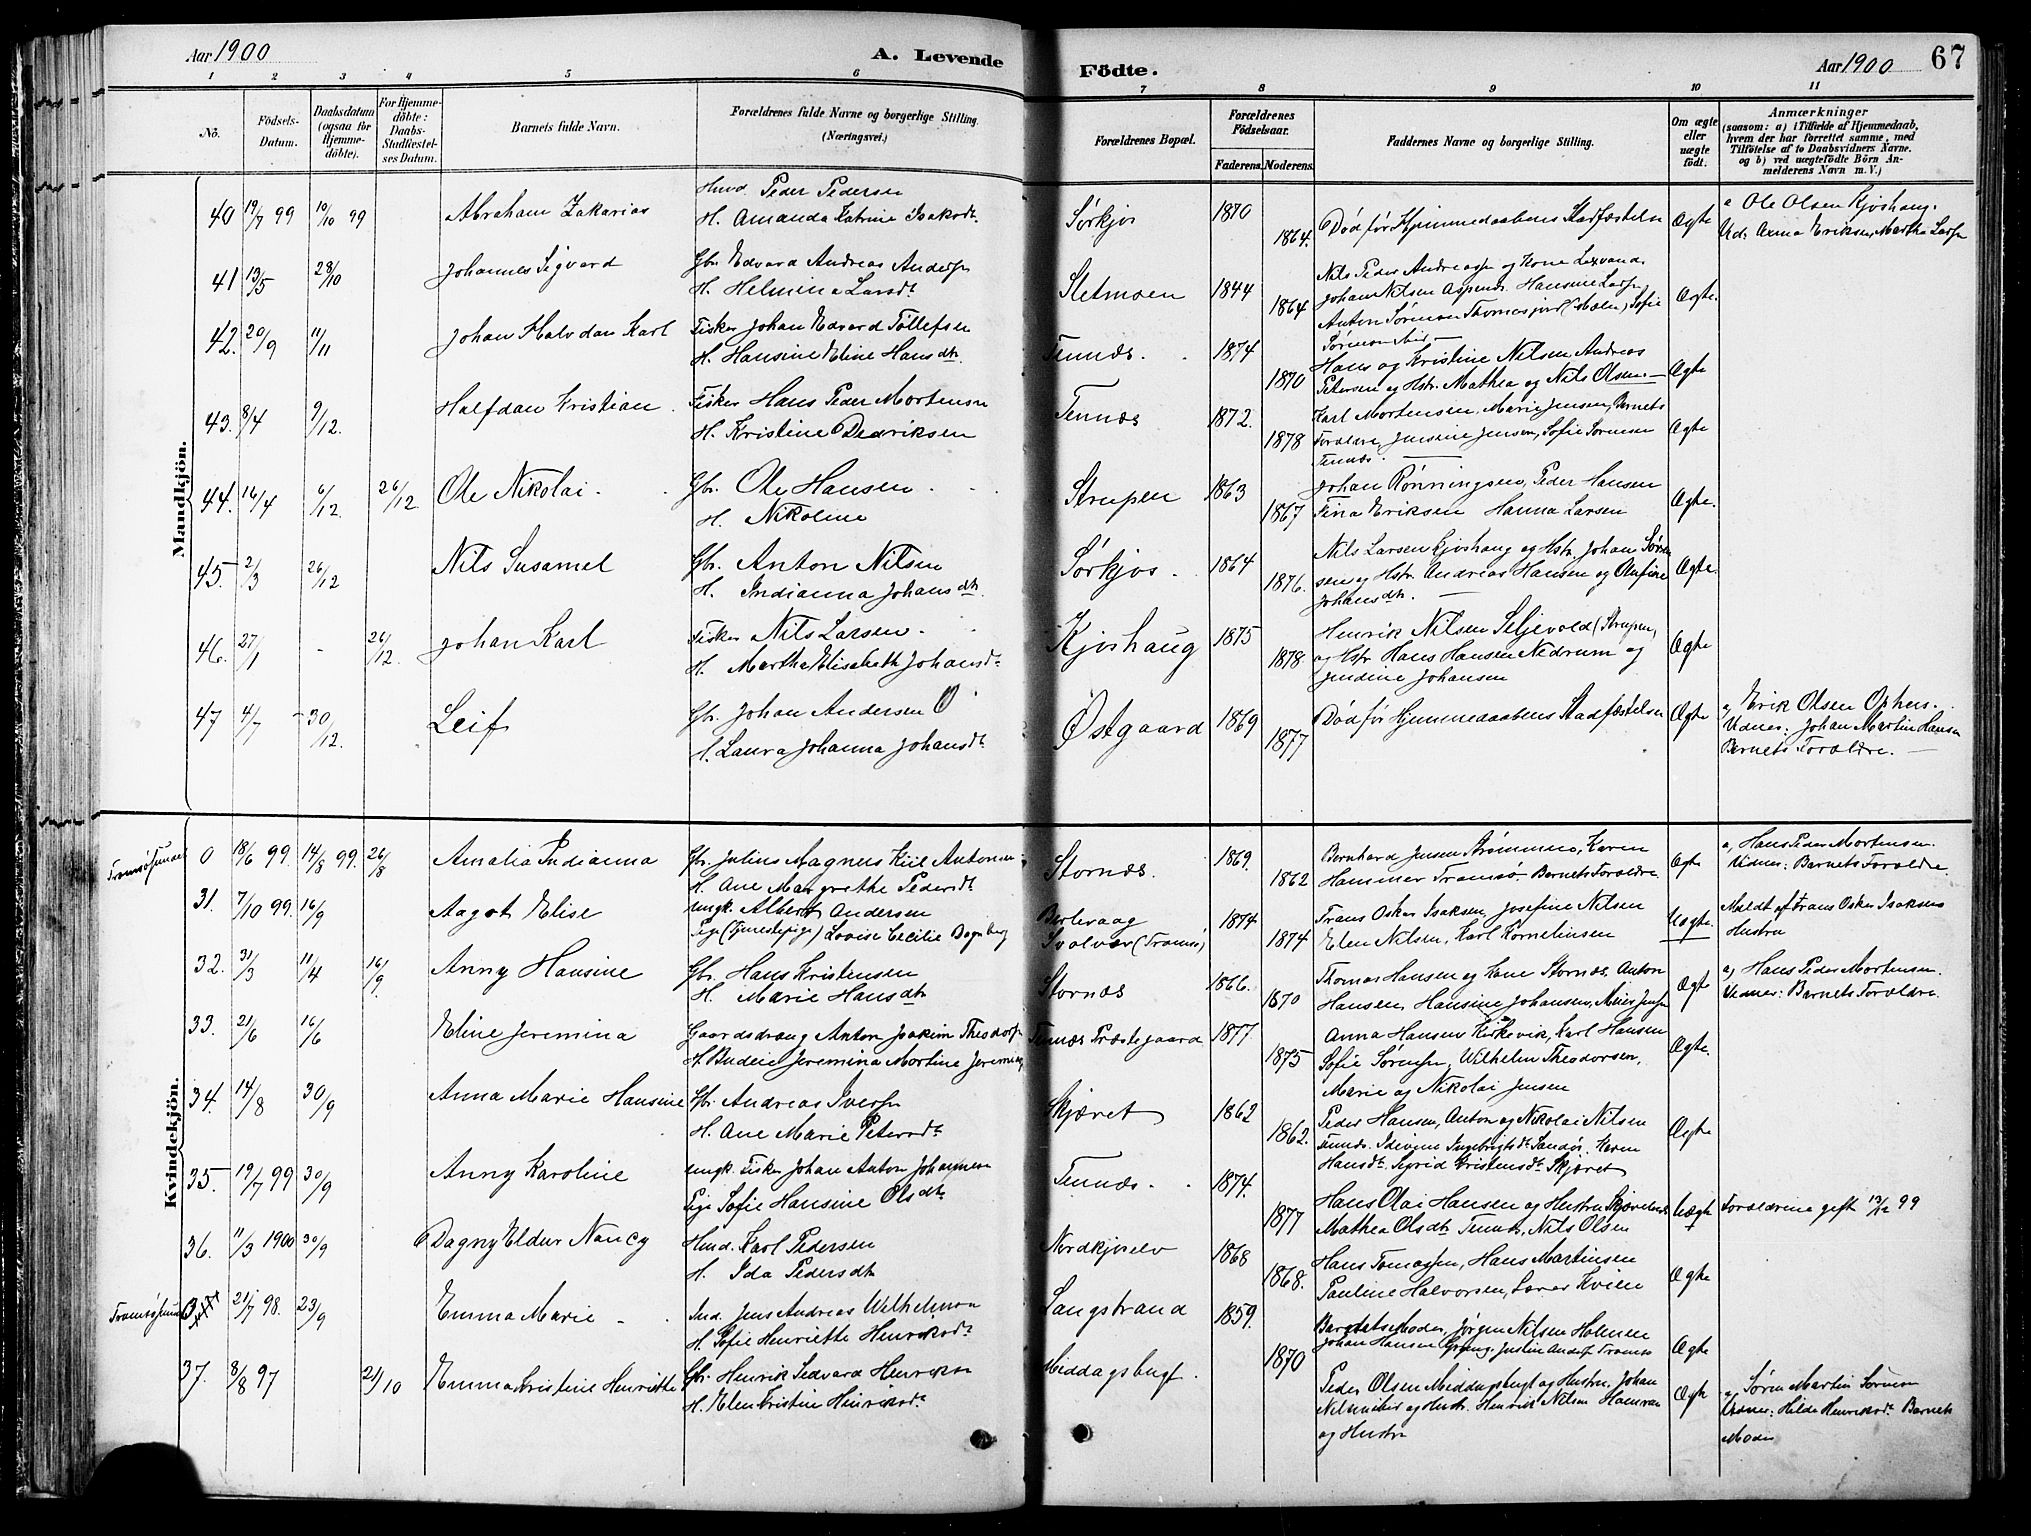 Aar 1900
A. Levende Födte.
Aar 1900
67
1 2 3 4 5 6 7 8 9 10 11
No.
Födsels-Datum.
Daabsdatum (ogsaa for Hjemme-döbte).
For Hjemme-döbte: Daabs-Stadfæstel-ses Datum.
Barnets fulde Navn.
Forældrenes fulde Navne og borgerlige Stilling. (Næringsvei.)
Forældrenes Bopæl.
Forældrenes Födselsaar.
Faderens. Moderens.
Faddernes Navne og borgerlige Stilling.
Om ægte eller uægte født.
Anmærkninger
(saasom: a) i Tilfælde af Hjemmedaab,
hvem der har forrettet samme, med
Tilföielse af to Daabsvidners Navne.
og b) ved uægtefödte Börn An-
melderens Navn m. V.)
Mandkjön.
40 19/7 99 10/10 99 Abraham Zakarias
Peder Pedersen
H. Amanda Katrine Isaksdt.
Sørkjos 1870 1864. Død før Hjemmedaabens Stadfæstelse Ægte
a Ole Olsen Kjoshaug.
Vid: Anna Eriksen, Martha Larsn
41 13/5 28/10 Johannes Sigvard
Gbr. Edvard Andreas Andersn
H. Helmina Larsdt
Sletmoen 1844 1864
Nils Peder Andreassn og Kone
Johan Nilsen Aspenes. Hansine Larsn,
Anton Sørensen Sofie
Ægte.
42. 20/9 11/11 Johan Halvdan Karl
Fisker Johan Edvard Tollefsen
H. Hansine Eline Hansdtr.
Tennæs. 1874 1870
Hans og Kristine Nilsen, Andreas
Petersen og Hstr. Mathea og Nils Olsen.
Ægte
43. 8/4 9/12. Halfdan Kristian.
Fisker Hans Peder Mortensn
H. Kristine Dedriksen
Tennæs 1872. 1878
Karl Mortensen, Marie Jensen, Barnets
Forældre, Jensine Jensen, Sofie Sørensen
Tennæs.
Ægte
44. 16/4 6/12. 26/12 Ole Nikolai.
Gbr. Ole Hansen
H. Nikoline
Strupen 1863 1867
Johan Rønningsen, Peder Hansen
Tina Eriksen Hanna Larsen
Ægte.
45. 2/3 26/12 Nils Susamel
Gbr. Anton Nilsen
H. Indianna Johansdtr.
Sørkjos. 1864 1876.
Nils Larsen Kjoshaug og Hstr. Johan Søren
sen og Hstr. Andreas Hansen og Olufine
Johansdtr.
Ægte.
46. 27/1 - 26/12. Johan Karl
Fisker Nils Larsen.
H. Martha Elisabeth Johansdt
Kjoshaug 1875 1878.
Henrik Nilsen Seljevold (Strupen,
og Hstr. Hans Hansen Nedrum og
Jendine Johansen
Ægte
47 4/7 - 30/12. Leif
Gbr. Johan Andersen Ø
H. Laura Johanna Johansdt
Østgaard 1869 1877
Død før Hjemmedaabens Stadfæstelse Ægte
a, Erik Olsen Ophus.
Vidner: Johan Martin Hansen
Barnets Forældre.
Kvindekjön.
Tromsøsundet 0 18/6 99. 14/8 99. 26/8 Amalia Indianna
Gbr. Julius Magnus Kiil Antonsen
H. Ane Margrethe Pedersdt
Stornæs. 1869. 1862
Bernhard Jensen Strømmen, Karen
Hammer Tromsø. Barnets Forældre.
Ægte
a, Hans Peder Mortensen.
Vidner: Barnets Forældre.
31. 7/10 99. 16/9 Aagot Elise
Ungk. Albert Andersen
Pige (Tjenestepige) Lovise Cecilie Bognberg
Berlevaag
Svolvær (Tromsø) 1874 1874
Frans Oskar Isaksen, Josefine Nilsen
Elen Nilsen, Karl Kornelinsen
Uægte.
Meldt af Frans Oskar Isaksens
Hustru
32. 31/3 11/4 16/9. Anny Hansine
Gbr. Hans Kristensen
H. Marie Hansdtr
Stornæs 1866. 1870
Thomas Hansen og Lene Stornæs, Anton
Hansen Hansine Johansen,
Ægte
a, Hans Peder Mortensen.
Vidner: Barnets Forældre.
33. 21/6 16/6 Eline Jeremina
Gaardsdreng Anton Joakim Theodorsn
H. Budeie Jeremina Mortine Jeremiasn
Tennæs Præstegaard 1877 1875
Anna Hansen Kirkevik, Karl Hansen
Sofie Sørensn, Wilhelm Theodorsen,
Marie og Nikolai Jensen
Ægte.
34. 14/8 30/9 Anna Marie Hansine
Gbr. Andreas Iversn
H. Ane Marie Petersdt
Skjæret 1862 1862.
Peder Hansen, Anton og Nikolai Nilsen
Tennæs. Ingebrigtsdt Sandør. Karen
Hansdt, Sigrid Kristensdt Skjæret
Ægte
35. 19/7 99 30/9 Anny Karoline
Ungk. Fisker Johan Anton Johannesn
Pige Sofie Hansine Olsdtr
Tennæs. 1874. 1877
Hans Olai Hansen og Hustru
Mathea Olsdt Tennes, Nils Olsen
Uægte
Forældrene gift 13/12 99
36. 11/3 1900 30/9 Dagny Eldur Nancy
Karl Pedersen
H. Ida Pedersdtr
Nordkjoselv 1868 1868.
Hans Tomassen, Hans Martinsen
Pauline Halvorsen, Lærer Kvien
Ægte
Tromsøsund 21/7 98. 23/9 Emma Marie
Ind. Jens Andreas Wilhelmsen
H. Sofie Henriette Henriksdt
Langstrand 1859. 1870
Barnets Moder, Jørgen Nilsen Holmen
Johan Hansen
Ægte
37. 8/8 97 21/10 Emma Kristine Henriette
Gbr. Henrik Sedvard Henriksn
H. Elen Kristine Henriksdt.
Middagsbugt.
Peder Olsen Middagsbugt og Hustru. Johan
og Hustr. Henrik Nilsen Hamran
og Hustru
Ægte
a, Søren Martin Sørensen
Vidner: Hilde Henriksdt. Barnets
Moder